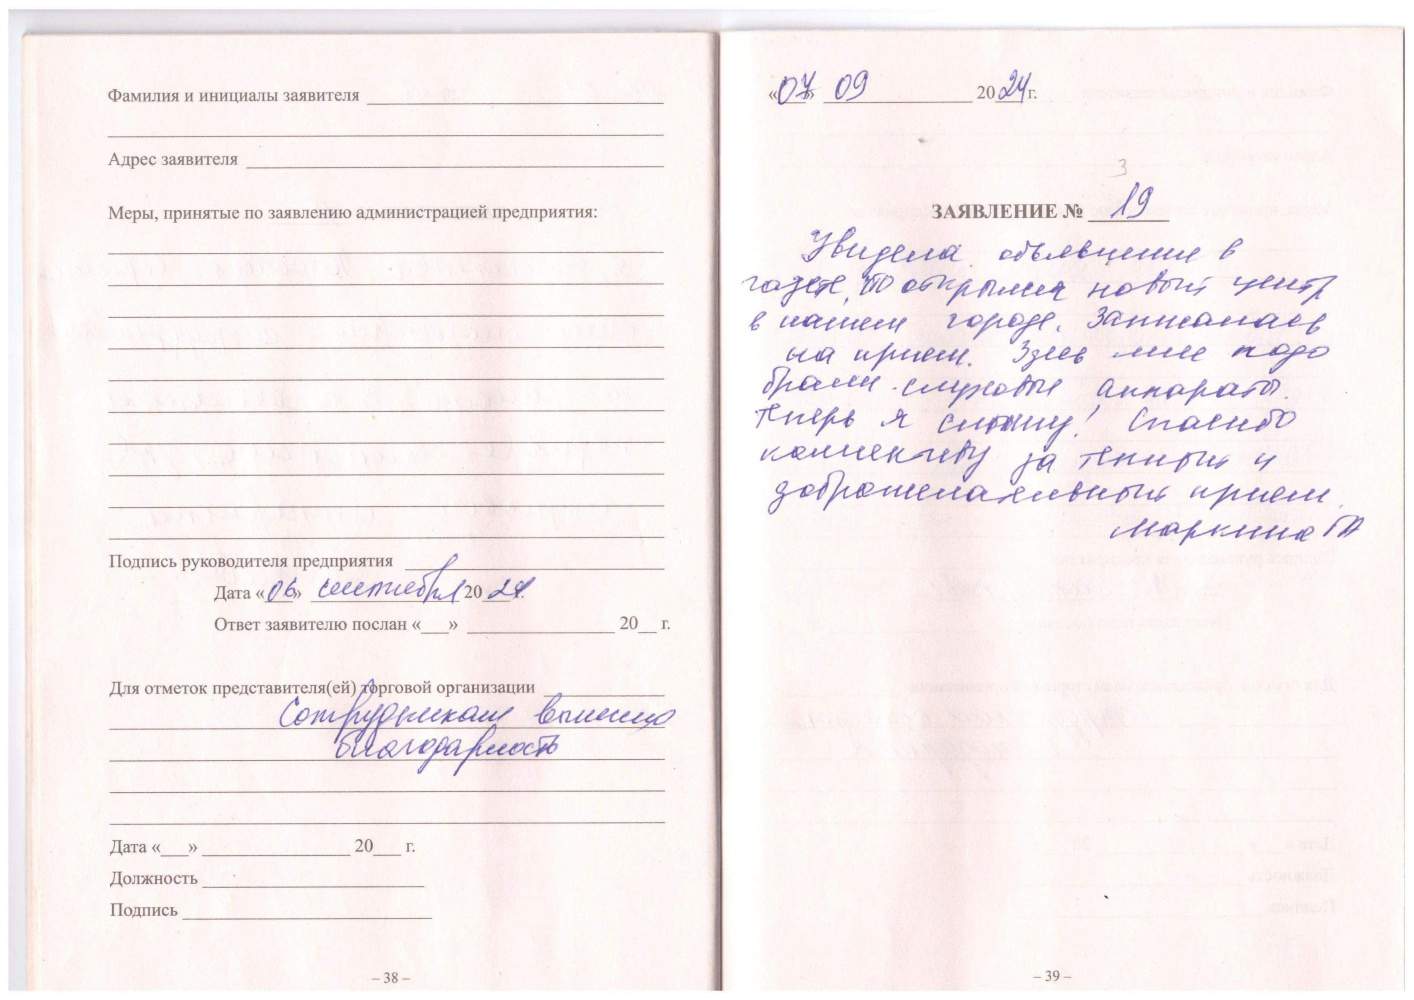 Фамилия и инициалы заявителя
Адрес заявителя
Меры, принятые по заявлению администрацией предприятия:
Подпись руководителя предприятия
Дата «06» сентября 2024 г.
Ответ заявителю послан «___» 20__ г.
Для отметок представителя(ей) торговой организации
Сотрудникам вынесена
благодарность
Дата «___» 20___ г.
Должность
Подпись
– 38 –
«07» 09 2024 г.
3
ЗАЯВЛЕНИЕ № 19
Увидела объявление в
газете, что открылся новый центр
в нашем городе. Записалась
на прием. Здесь мне подо
брали слуховые аппараты.
Теперь я слышу! Спасибо
коллективу за теплый и
доброжелательный прием.
Маркина ГА
– 39 –